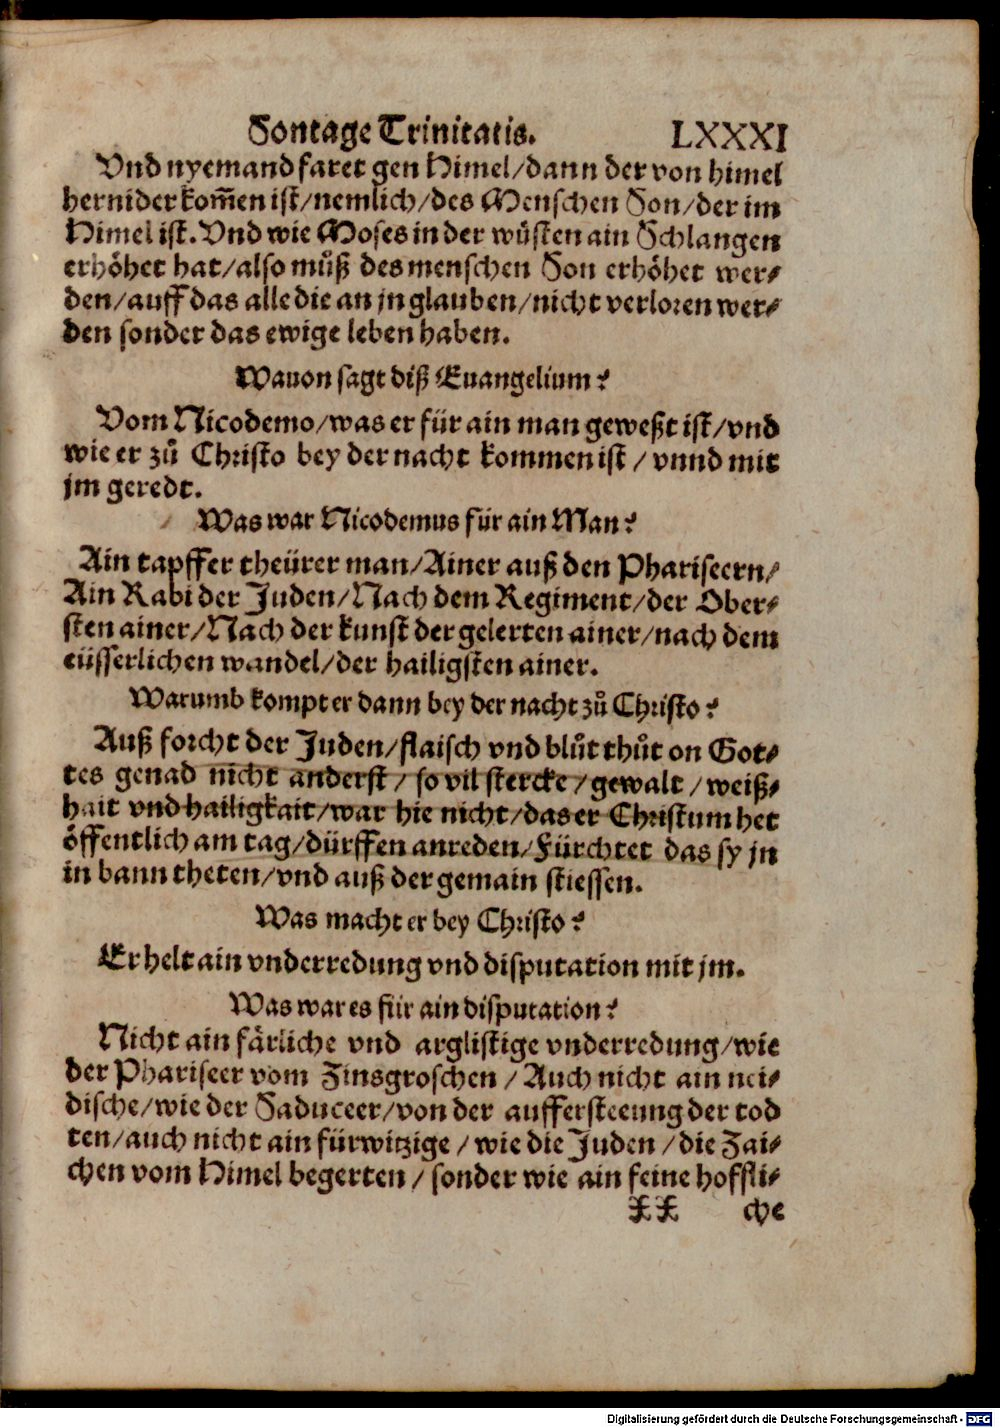 Sontage Trinitatis. LXXXI
Vnd nyemand faret gen Himel/dann der von himel
hernider kom̄en ist/nemlich/des Menschen Son/der im
Himel ist. Vnd wie Moses in der wůsten ain Schlangen
erhöhet hat/also můß des menschen Son erhöhet wer⸗
den/auff das alle die an jn glauben/nicht verloren wer⸗
den sonder das ewige leben haben.
Wauon sagt diß Euangelium?
Vom Nicodemo/was er für ain man geweßt ist/vnd
wie er zů Christo bey der nacht kommen ist/vnnd mit
jm geredt.
Was war Nicodemus für ain Man?
Ain tapffer theürer man/Ainer auß den Phariseern/
Ain Rabi der Juden/Nach dem Regiment/der Ober⸗
sten ainer/Nach der kunst der gelerten ainer/nach dem
eüsserlichen wandel/der hailigsten ainer.
Warumb kompt er dann bey der nacht zů Christo?
Auß forcht der Juden/flaisch vnd blůt thůt on Got⸗
tes genad nicht anderst/so vil stercke/gewalt/weiß⸗
hait vnd hailigkait/war hie nicht/das er Christum het
öffentlich am tag/dürffen anreden/Fürchtet das sy jn
in bann theten/vnd auß der gemain stiessen.
Was macht er bey Christo?
Er helt ain vnderredung vnd disputation mit jm.
Was war es für ain disputation?
Nicht ain färliche vnd arglistige vnderredung/wie
der Phariseer vom Zinsgroschen/Auch nicht ain nei⸗
dische/wie der Saduceer/von der aufferstee​ung der tod
ten/auch nicht ain fürwitzige/wie die Juden/die Zai⸗
chen vom Himel begerten/sonder wie ain feine hoffli⸗
XX che
Digitalisierung gefördert durch die Deutsche Forschungsgemeinschaft - DFG